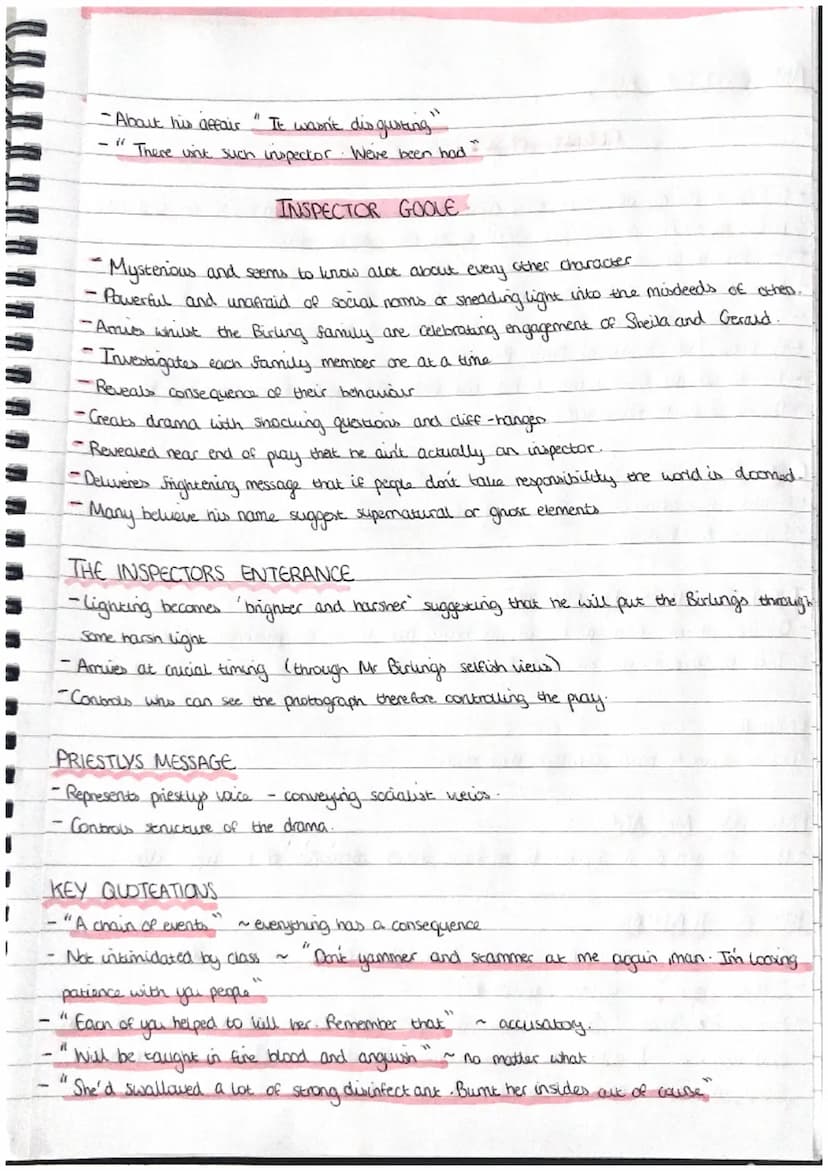 - About his affair " It wasn't disgusting"
- " There isnt such inspector. We've been had"
INSPECTOR GOOLE
- Mysterious and seems to know alot about every other character
- Powerful and unafraid of social norms or shedding light into the misdeeds of others.
- Arrives whilst the Birling family are celebrating engagement of Sheila and Gerald.
- Investigates each family member one at a time
- Reveals consequence of their behaviour
- Creats drama with shocking questions and cliff-hanger
- Revealed near end of play that he ain't actually an inspector.
- Deliveres frightening message that if people don't take responsibility the world is doomed.
- Many believe his name suggest supernatural or ghost elements
THE INSPECTORS ENTERANCE
- Lighting becomes 'brighter and harsher' suggesting that he will put the Birlings through
some harsh light
- Arrives at crucial timing (through Mr Birlings selfish views)
- Controls who can see the photograph therefore controlling the play.
PRIESTLYS MESSAGE
- Represents priestlys voice - conveying socialist veiws.
- Controls structure of the drama.
KEY QUOTEATIONS
- "A chain of events" ~ everything has a consequence
- Not intimidated by class ~ "Don't yammer and stammer at me again, man. I'm loosing
patience with you people"
- "Each of you helped to kill her. Remember that" ~ accusatory.
- "Will be taught in fire blood and anguish" ~ no matter what
- "She'd swallowed a lot of strong disinfectant. Burnt her insides out of cause"